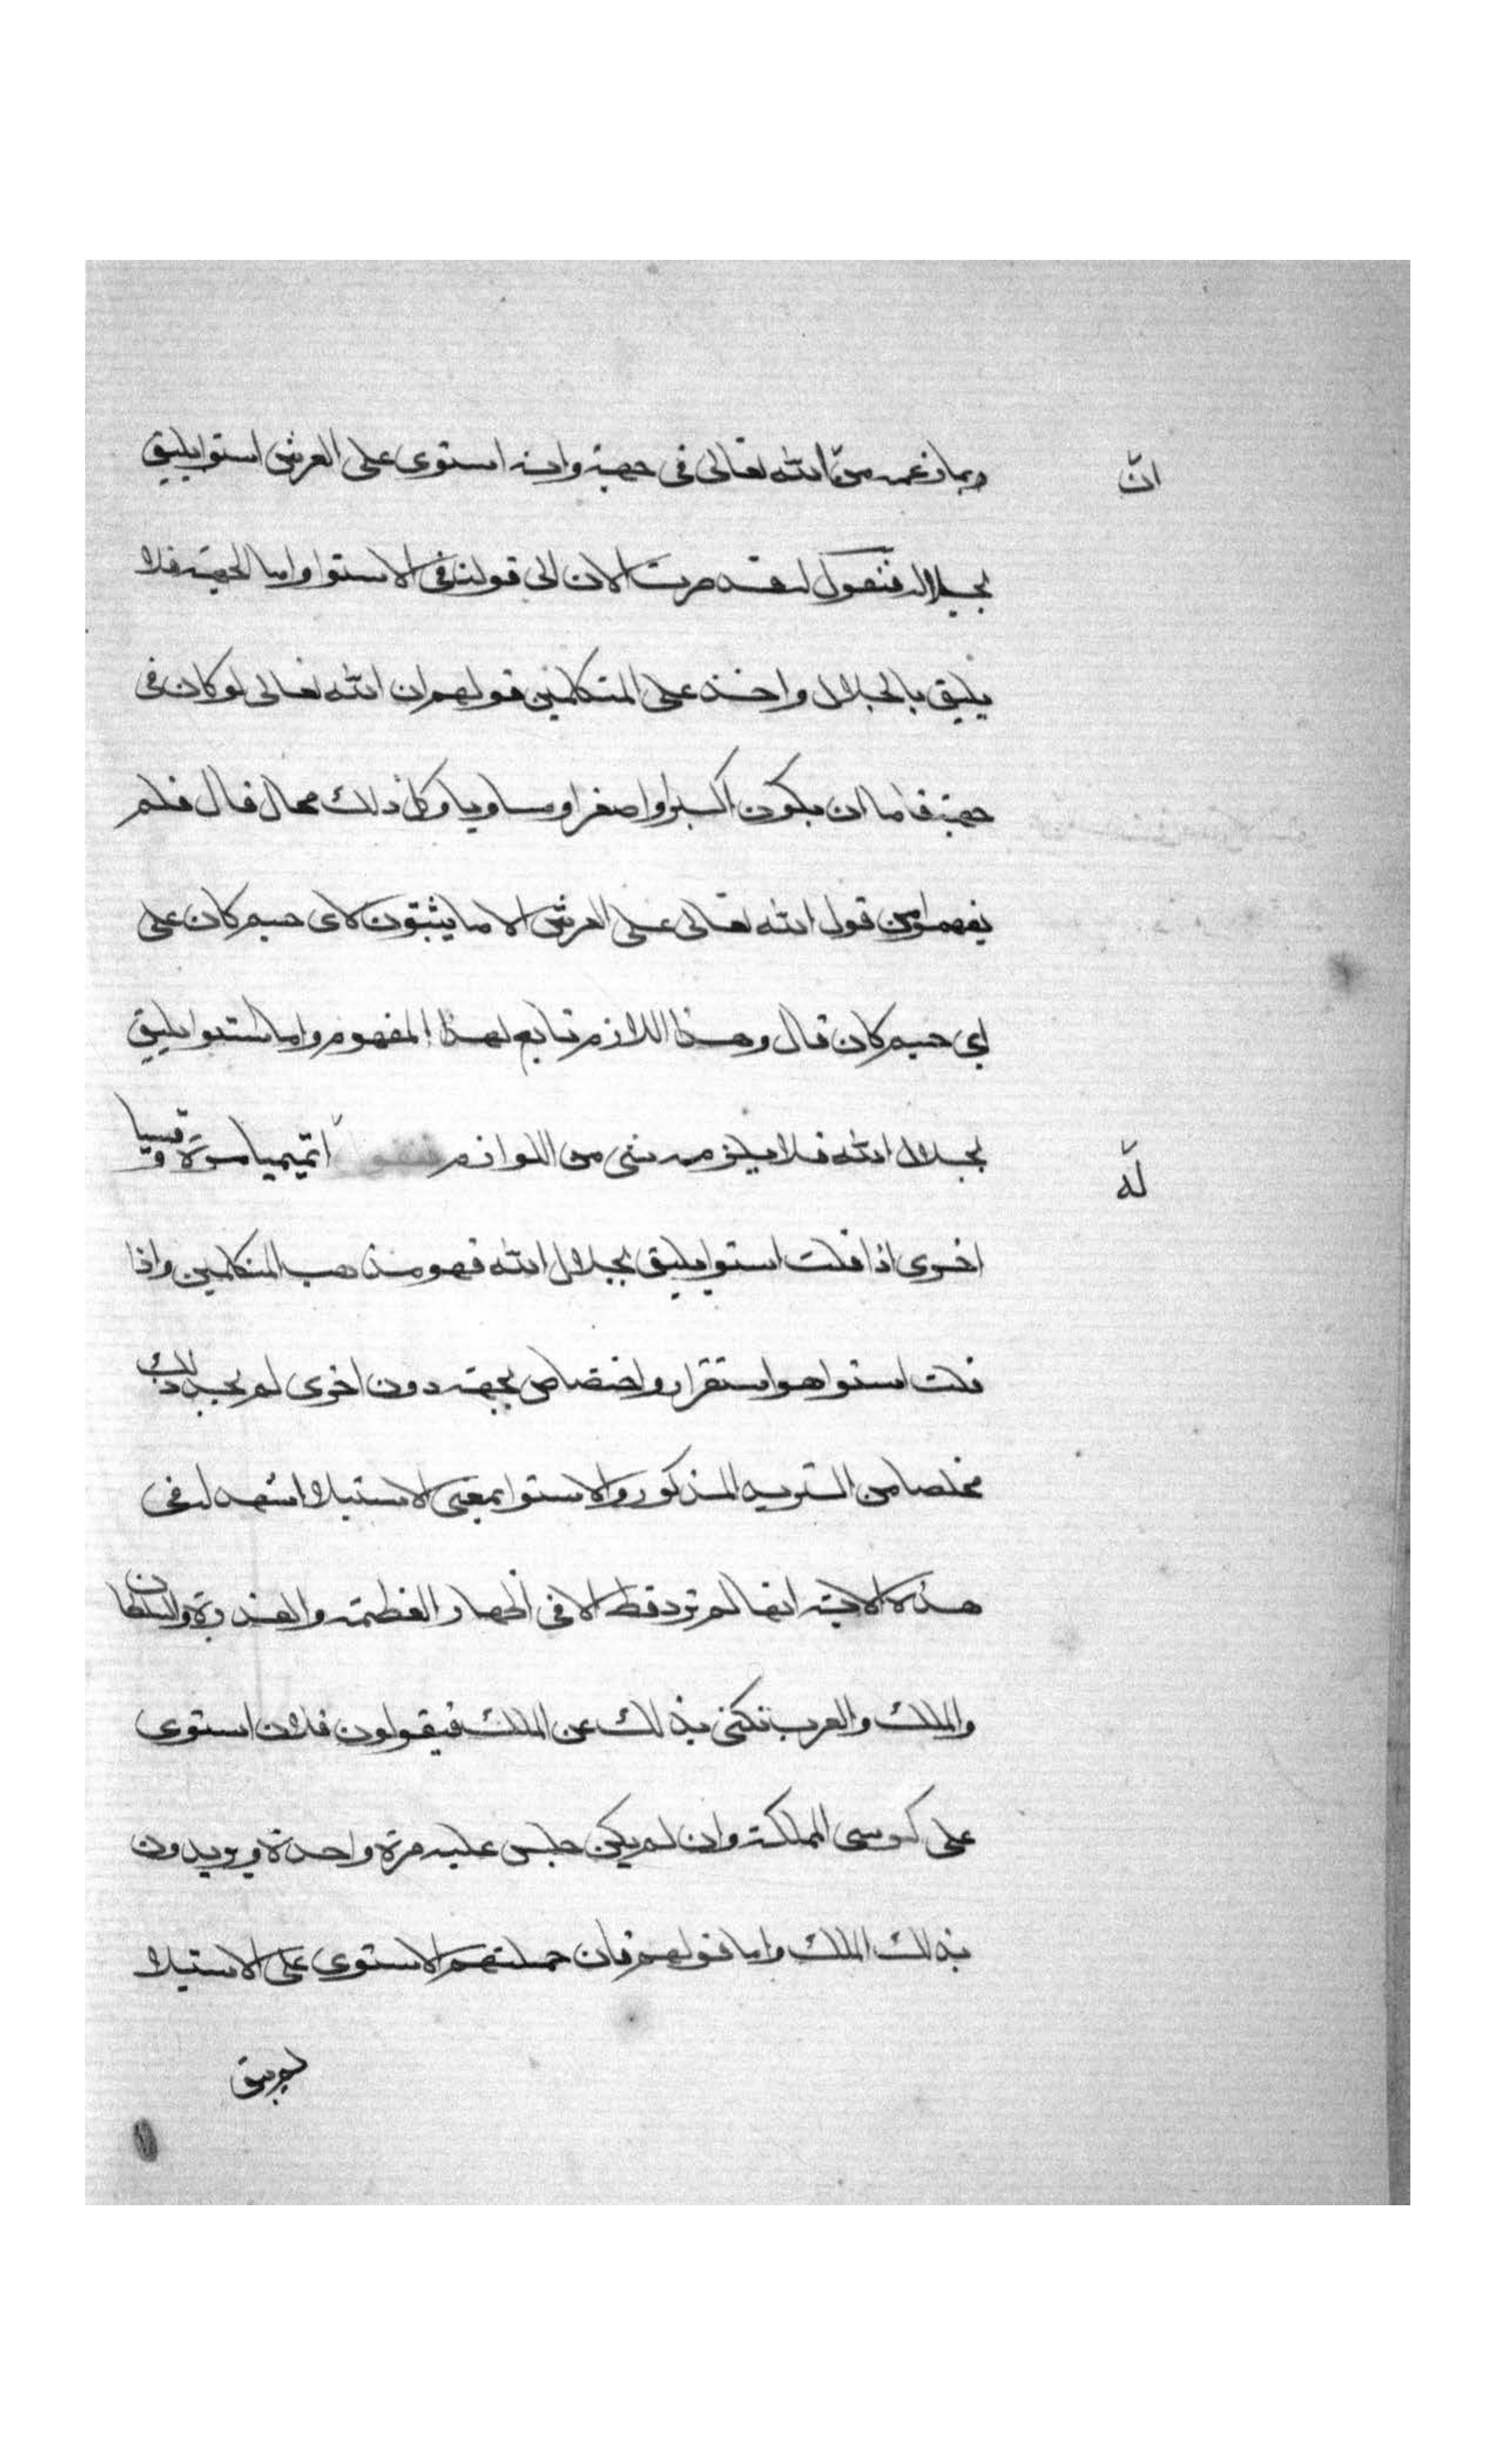 وبما زعمه من الله تعالى فى جهة وانه استوى على العرش استوا يليق
انّ
بجلاله فنقول لقد صرت الان الى قولنا فى الاستوا واما الجهة فلا
يليق بالجلال واخذ على المتكلمين قولهم ان الله تعالى لو كان فى
جهة فاما ان يكون اكبر او اصغر او مساويا وكل ذلك محال قال فلم
يفهموا من قول الله تعالى على العرش الا ما يثبتون لاى جسم كان على
اى جسم كان قال وهذا اللازم تابع لهذا المفهوم واما استوا يليق
بجلال الله فلا يلزمه شى من اللوازم فنقول اتميميا مرة وقيسيا
له
اخرى اذا قلت استوا يليق بجلال الله فهو مذهب المتكلمين واذا
قلت استوا هو استقرار واختصاص بجهة دون اخرى لم يجد ذلك
مخلصا من الترديد المذكور والاستوا بمعنى الاستيلا اشهد له فى
هذه الاية انها لم ترد قط الا فى اظهار العظمة والقدرة والسلطان
والملك والعرب تكنى بذلك عن الملك فيقولون فلان استوى
على كرسى المملكة وان لم يكن جلس عليه مرة واحدة ويريدون
بذلك الملك واما قولهم فان حملتم الاستوى على الاستيلا
لم يبق